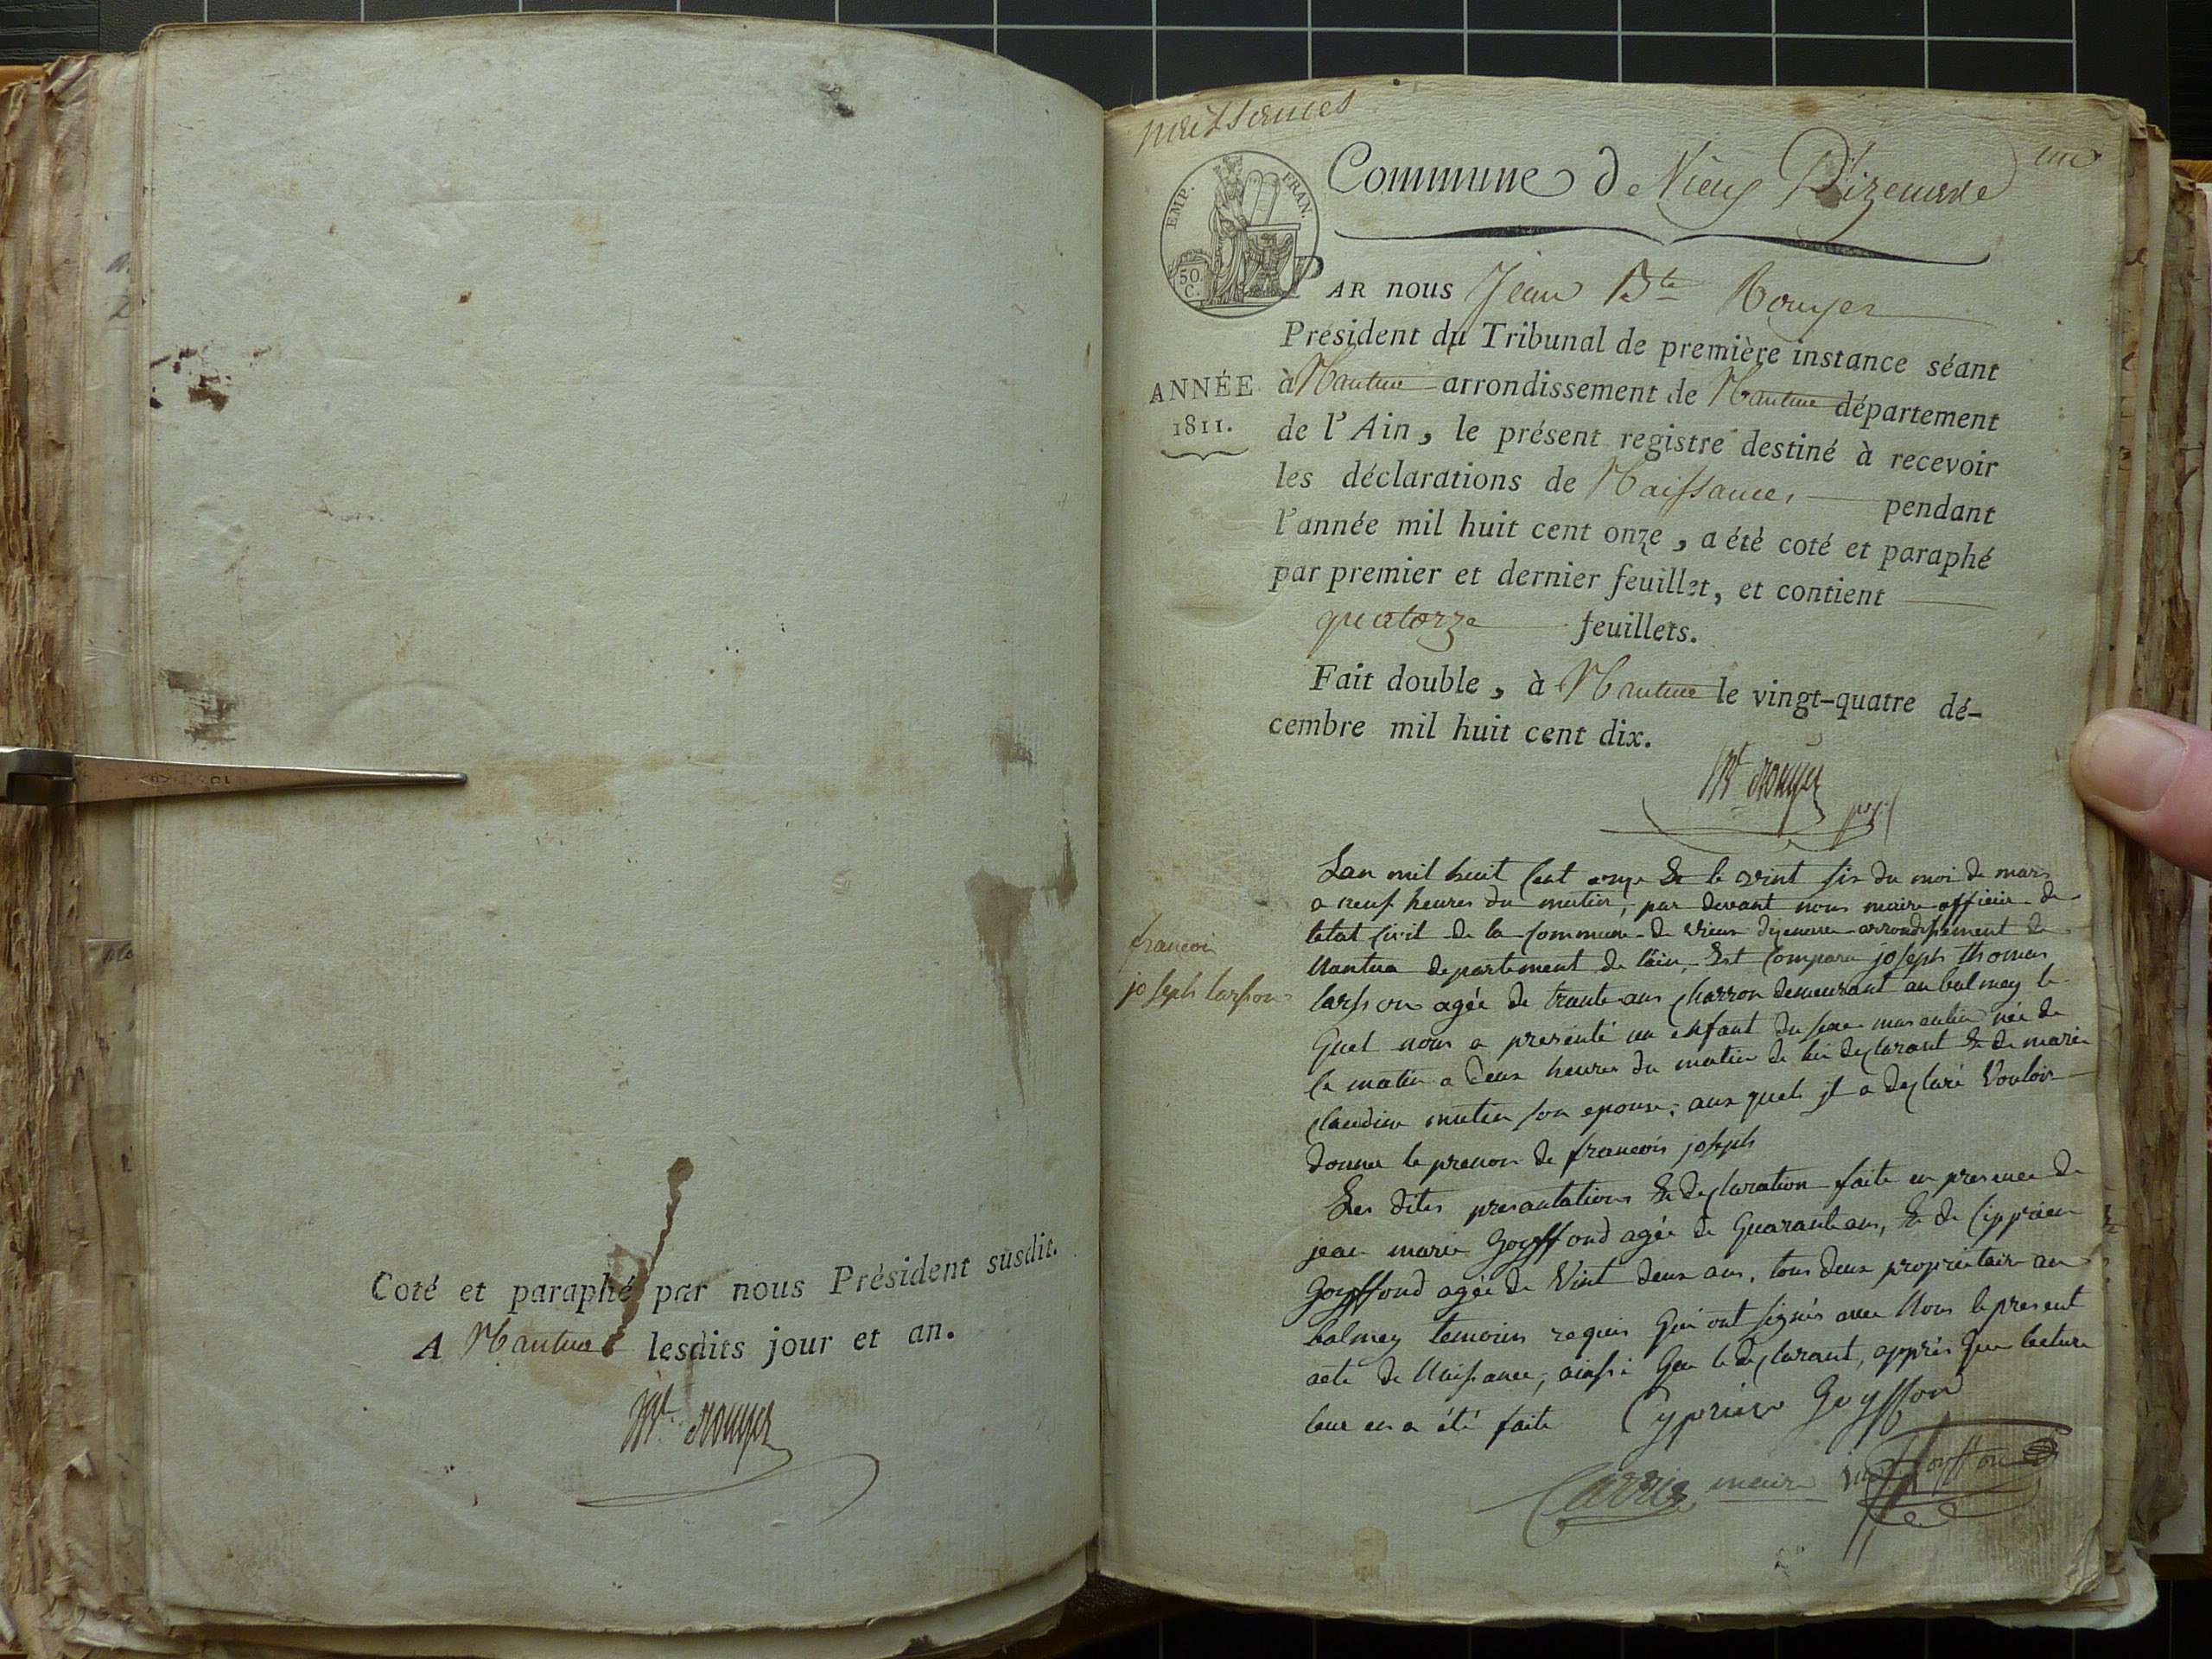 Coté et paraphé par nous Président susdit.
A Nantua lesdits jour et an.
Bte Rouyer
naissances
un
Commune de Vieux D'izenave
EMP. FRAN.
50 C.
PAR nous Jean Bte Rouyer
Président du Tribunal de première instance séant
ANNÉE
1811.
à Nantua arrondissement de Nantua département
de l'Ain, le présent registre destiné à recevoir
les déclarations de Naissances pendant
l'année mil huit cent onze, a été coté et paraphé
par premier et dernier feuillet, et contient
quatorze feuillets.
Fait double, à Nantua le vingt-quatre dé-
cembre mil huit cent dix.
Bte Rouyer
francois
joseph
Lan mil huit Cent onze & le vint six du moi de mars
a neuf heures du matin, par devant nous maire officier de
letat Civil de la Commune de vieux dizenave arrondissement de
Nantua departement de lain, Est Comparu joseph thomas
agée de trante ans Charron demeurant au balmey le
Quel nous a presenté un enfant du sexe masculin née de
Ce matin a deux heures du matin de lui declarant & de marie
Claudine son epouse; aux quels il a declaré Vouloir
donner le prenon de francois joseph
Les dites presantations & declaration faite en presence de
jean marie goyffond agée de Quarante ans, & de Cipprien
goyffond agée de Vint deux ans, tous deux proprietaire au
balmey temoins requis Qui ont signés avec Nous le present
acte de Naissance, ainssi Que le declarant, apprés Que lecture
leur en a été faite Cyprien Goyffon
Carrier maire goyffon